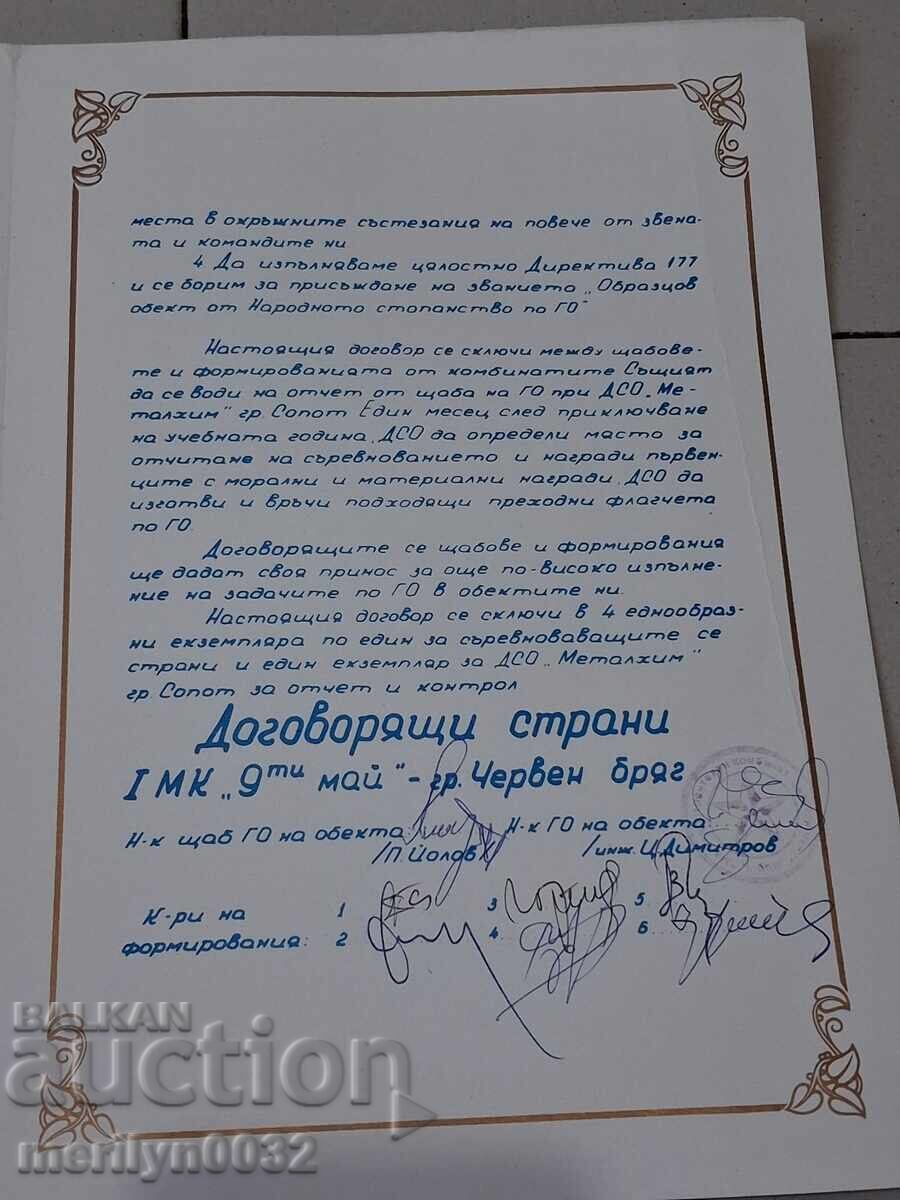 места в окръжните състезания на повече от звена-
та и командите ни
4. Да изпълняваме цялостно Директива 177
и се борим за присъждане на званието „Образцов
обект от Народното стопанство по ГО"
Настоящия договор се сключи между щабове-
те и формированията от комбинатите Същият
да се води на отчет от щаба на ГО при ДСО „Ме-
талхим" гр. Сопот Един месец след приключване
на учебната година, ДСО да определи място за
отчитане на съревнованието и награди първен-
ците с морални и материални награди, ДСО да
изготви и връчи подходящи преходни флагчета
по ГО.
Договорящите се щабове и формирования
ще дадат своя принос за още по-високо изпълне-
ние на задачите по ГО в обектите ни.
Настоящия договор се сключи в 4 еднообраз-
ни екземпляра по един за съревноваващите се
страни и един екземпляр за ДСО „Металхим"
гр. Сопот за отчет и контрол
Договорящи страни
I МК „9ти май" - гр. Червен бряг
Н-к щаб ГО на обекта: Н-к ГО на обекта:
/П. Йолов/ /инж. Ц. Димитров
К-ри на 1 3 5
формирования: 2 4 6
BALKAN
auction
merilyn0032